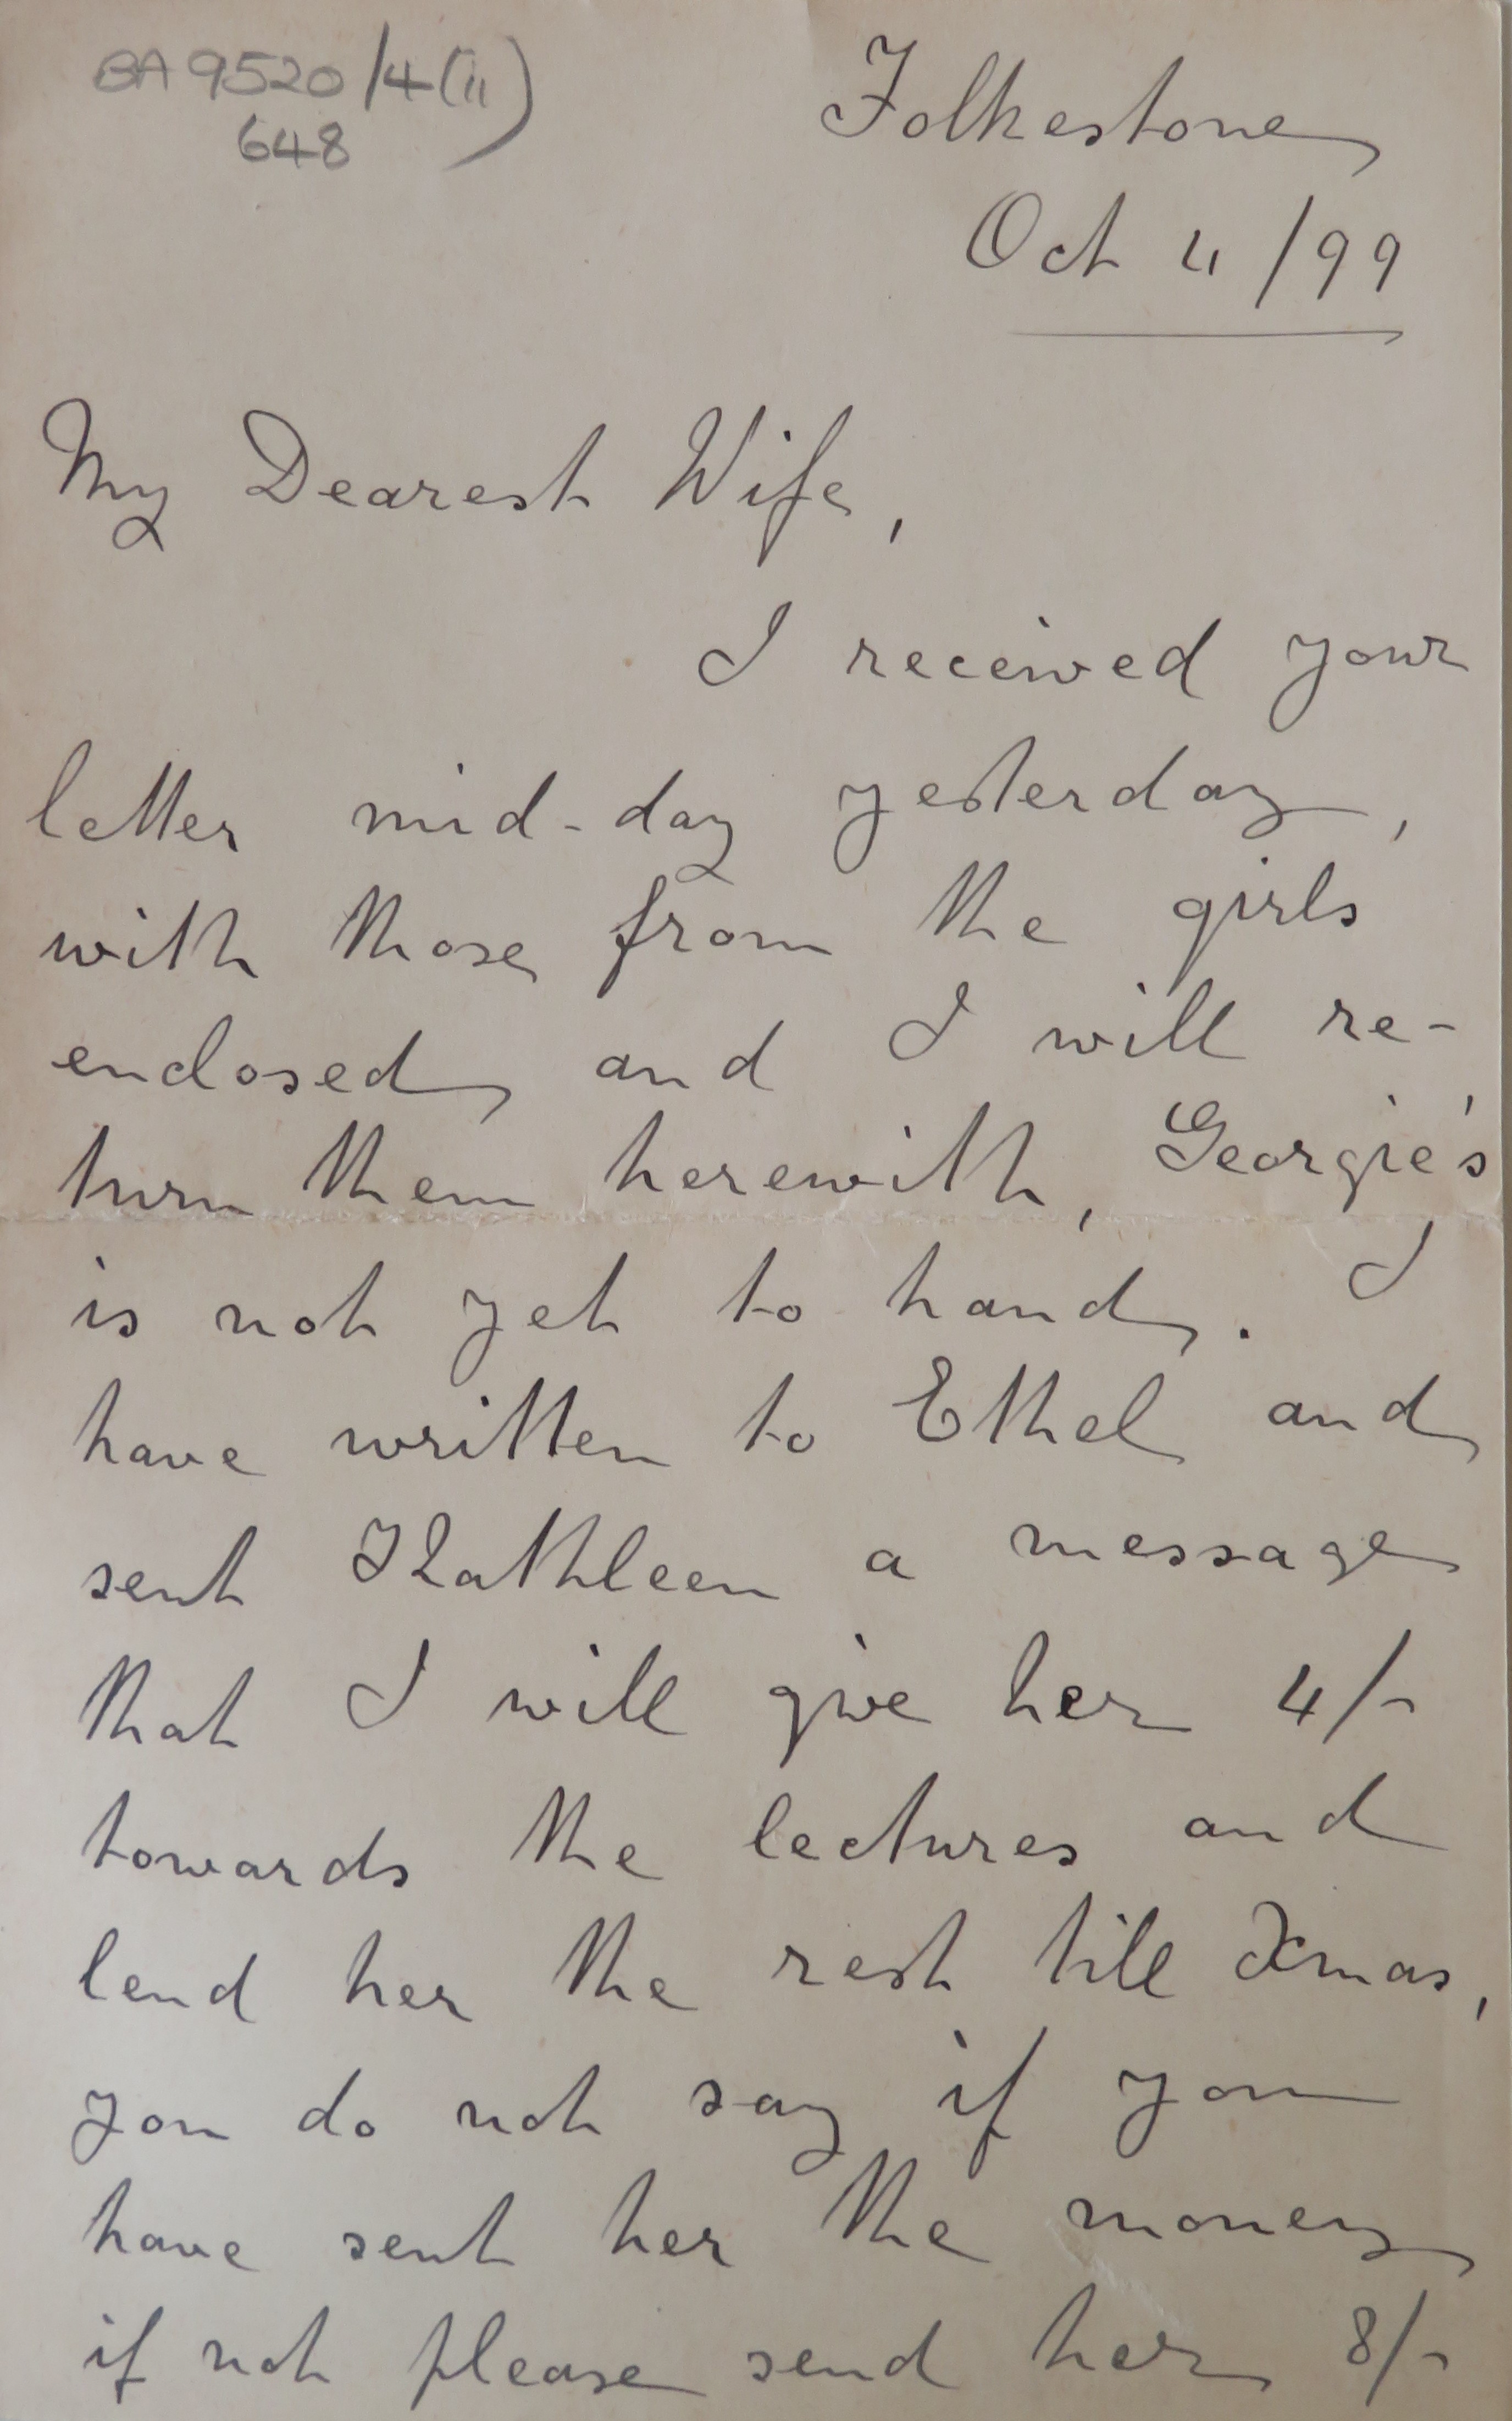 BA 9520/4(ii)
648
Folkestone
Oct 4/99
My Dearest Wife,
I received your
letter mid-day yesterday,
with those from the girls
enclosed and I will re-
turn them herewith, Georgie's
is not yet to hand. I
have written to Ethel and
sent Kathleen a message
that I will give her 4/-
towards the lectures and
lend her the rest till Xmas,
you do not say if you
have sent her the money
if not please send her 8/-